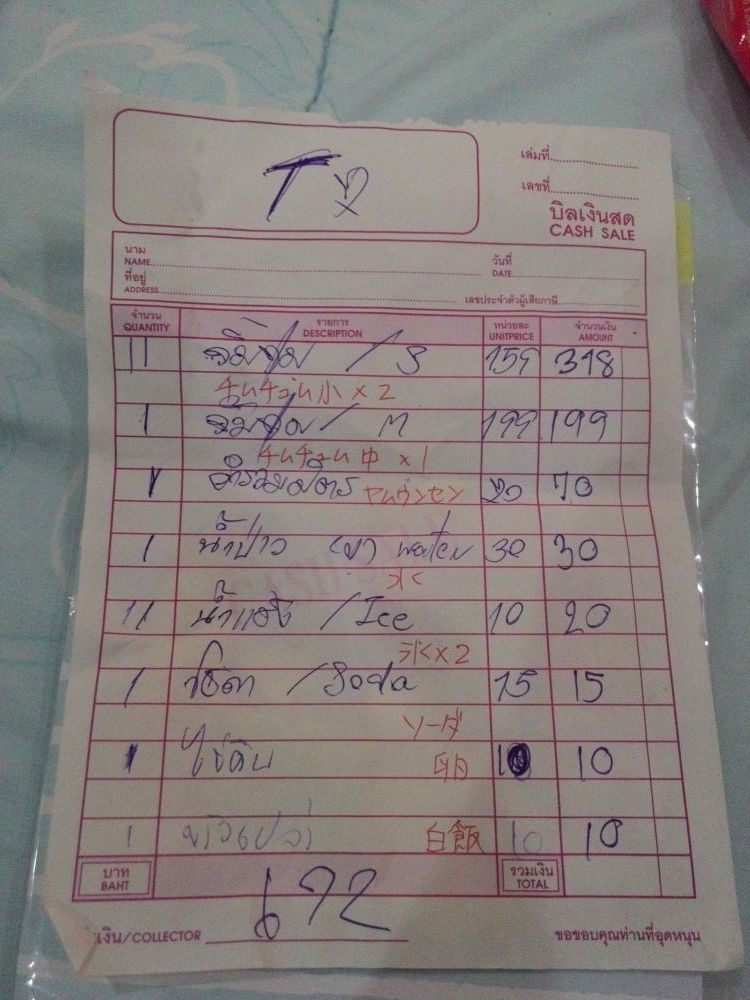 T
เล่มที่
เลขที่
บิลเงินสด
CASH SALE
นาม
NAME
วันที่
DATE
ที่อยู่
ADDRESS
เลขประจำตัวผู้เสียภาษี
จำนวน QUANTITY รายการ DESCRIPTION หน่วยละ UNITPRICE จำนวนเงิน AMOUNT
11 จิ้มจุ่ม / S 159 318
チムチュム小 x 2
1 จิ้มจุ่ม / M 199 199
チムチュム中 x 1
70
1 น้ำเปล่า water 30 30
水
11 น้ำแข็ง / Ice 10 20
氷 x 2
1 โซดา / Soda 15 15
ソーダ
1 ไข่ดิบ 10 10
卵
1 ข้าวเปล่า 白飯 10 10
บาท BAHT 672 รวมเงิน TOTAL
เงิน/COLLECTOR
ขอขอบคุณท่านที่อุดหนุน